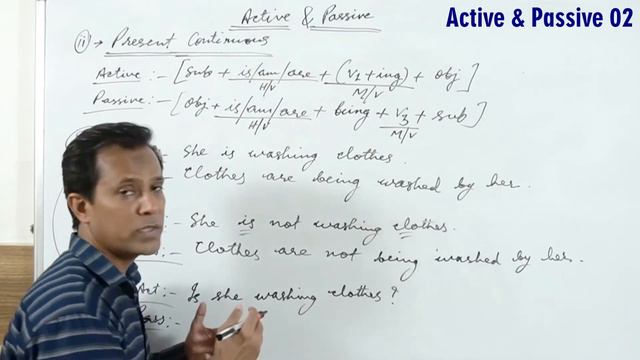 Active & Passive 02
Active & Passive
(ii) → Present Continuous
Active :- [sub + is/am/are + (V1 + ing) + obj]
H/V M/V
Passive :- [obj + is/am/are + being + V3 + sub]
H/V M/V
:- She is washing clothes.
:- Clothes are being washed by her.
:- She is not washing clothes.
:- Clothes are not being washed by her.
Act :- Is she washing clothes?
Pass :-